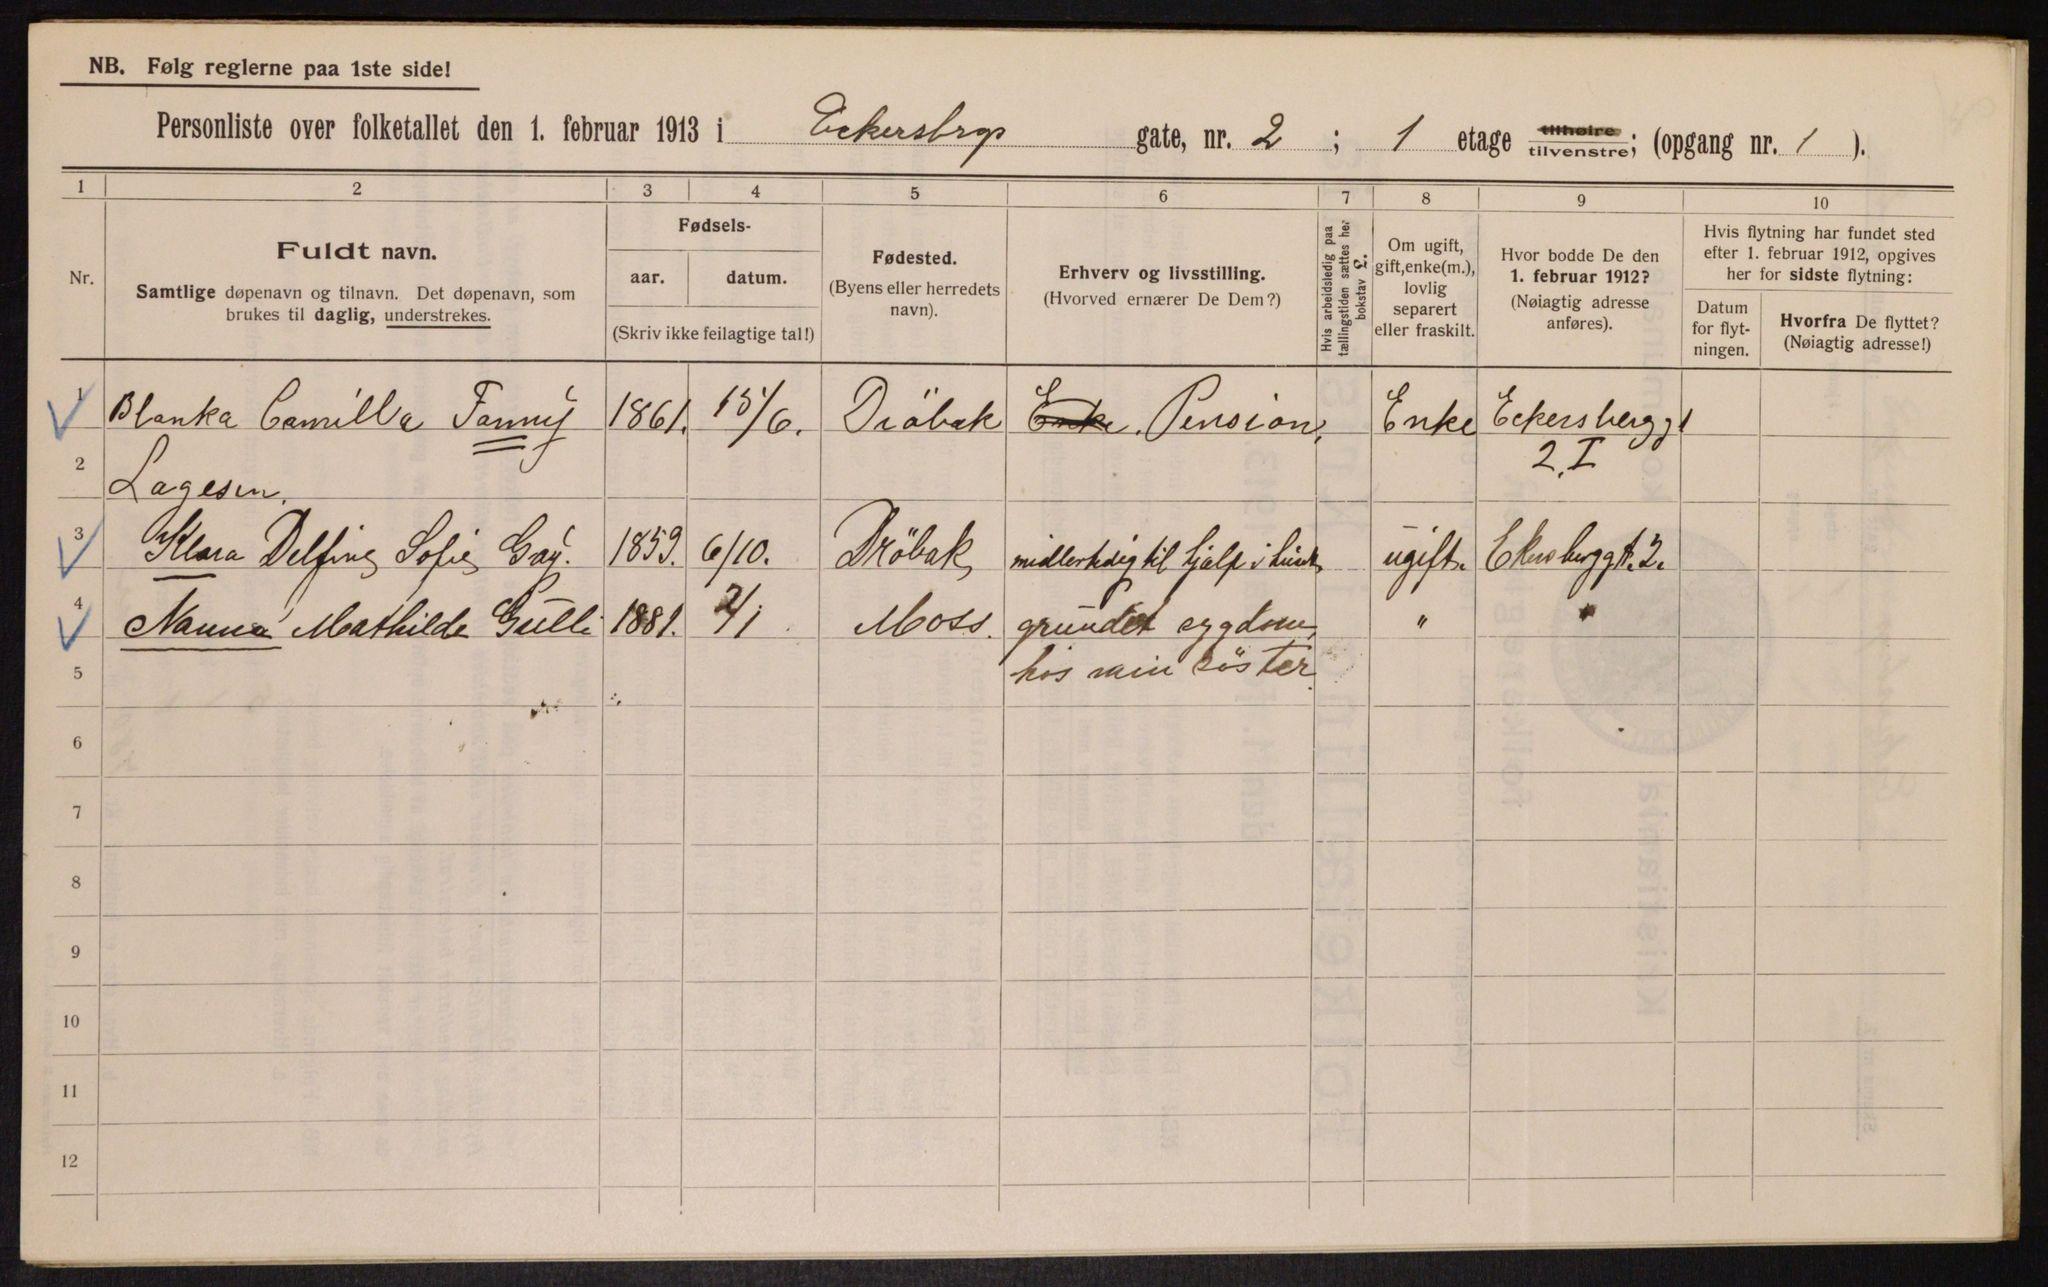 NB. Følg reglerne paa 1ste side!
Personliste over folketallet den 1. februar 1913 i Eckersbergs gate, nr. 2 ; 1 etage tilhøire tilvenstre; (opgang nr. 1 ).
1 2 3 4 5 6 7 8 9 10
Nr.
Fuldt navn.
Samtlige døpenavn og tilnavn. Det døpenavn, som
brukes til daglig, understrekes.
Fødsels-
aar. datum.
(Skriv ikke feilagtige tal!)
Fødested.
(Byens eller herredets
navn).
Erhverv og livsstilling.
(Hvorved ernærer De Dem?)
Hvis arbeidsledig paa
tællingstiden sættes her
bokstav L.
Om ugift,
gift, enke(m.),
lovlig
separert
eller fraskilt.
Hvor bodde De den
1. februar 1912?
(Nøiagtig adresse
anføres).
Hvis flytning har fundet sted
efter 1. februar 1912, opgives
her for sidste flytning:
Datum
for flyt-
ningen.
Hvorfra De flyttet?
(Nøiagtig adresse!)
1 Blanka Camilla Fanny 1861. 15/6. Dröbak Enke. Pension, Enke Eckersberggt
2 Lagesen. 2, I
3 Klara Delfine Sofie Gay. 1859. 6/10. Dröbak midlertidig til hjælp i huset ugift. Ekersberggt. 2.
4 Nanna Mathilde Gulli 1881. Moss. grundet sygdom, " "
5 hos min söster.
6
7
8
9
10
11
12